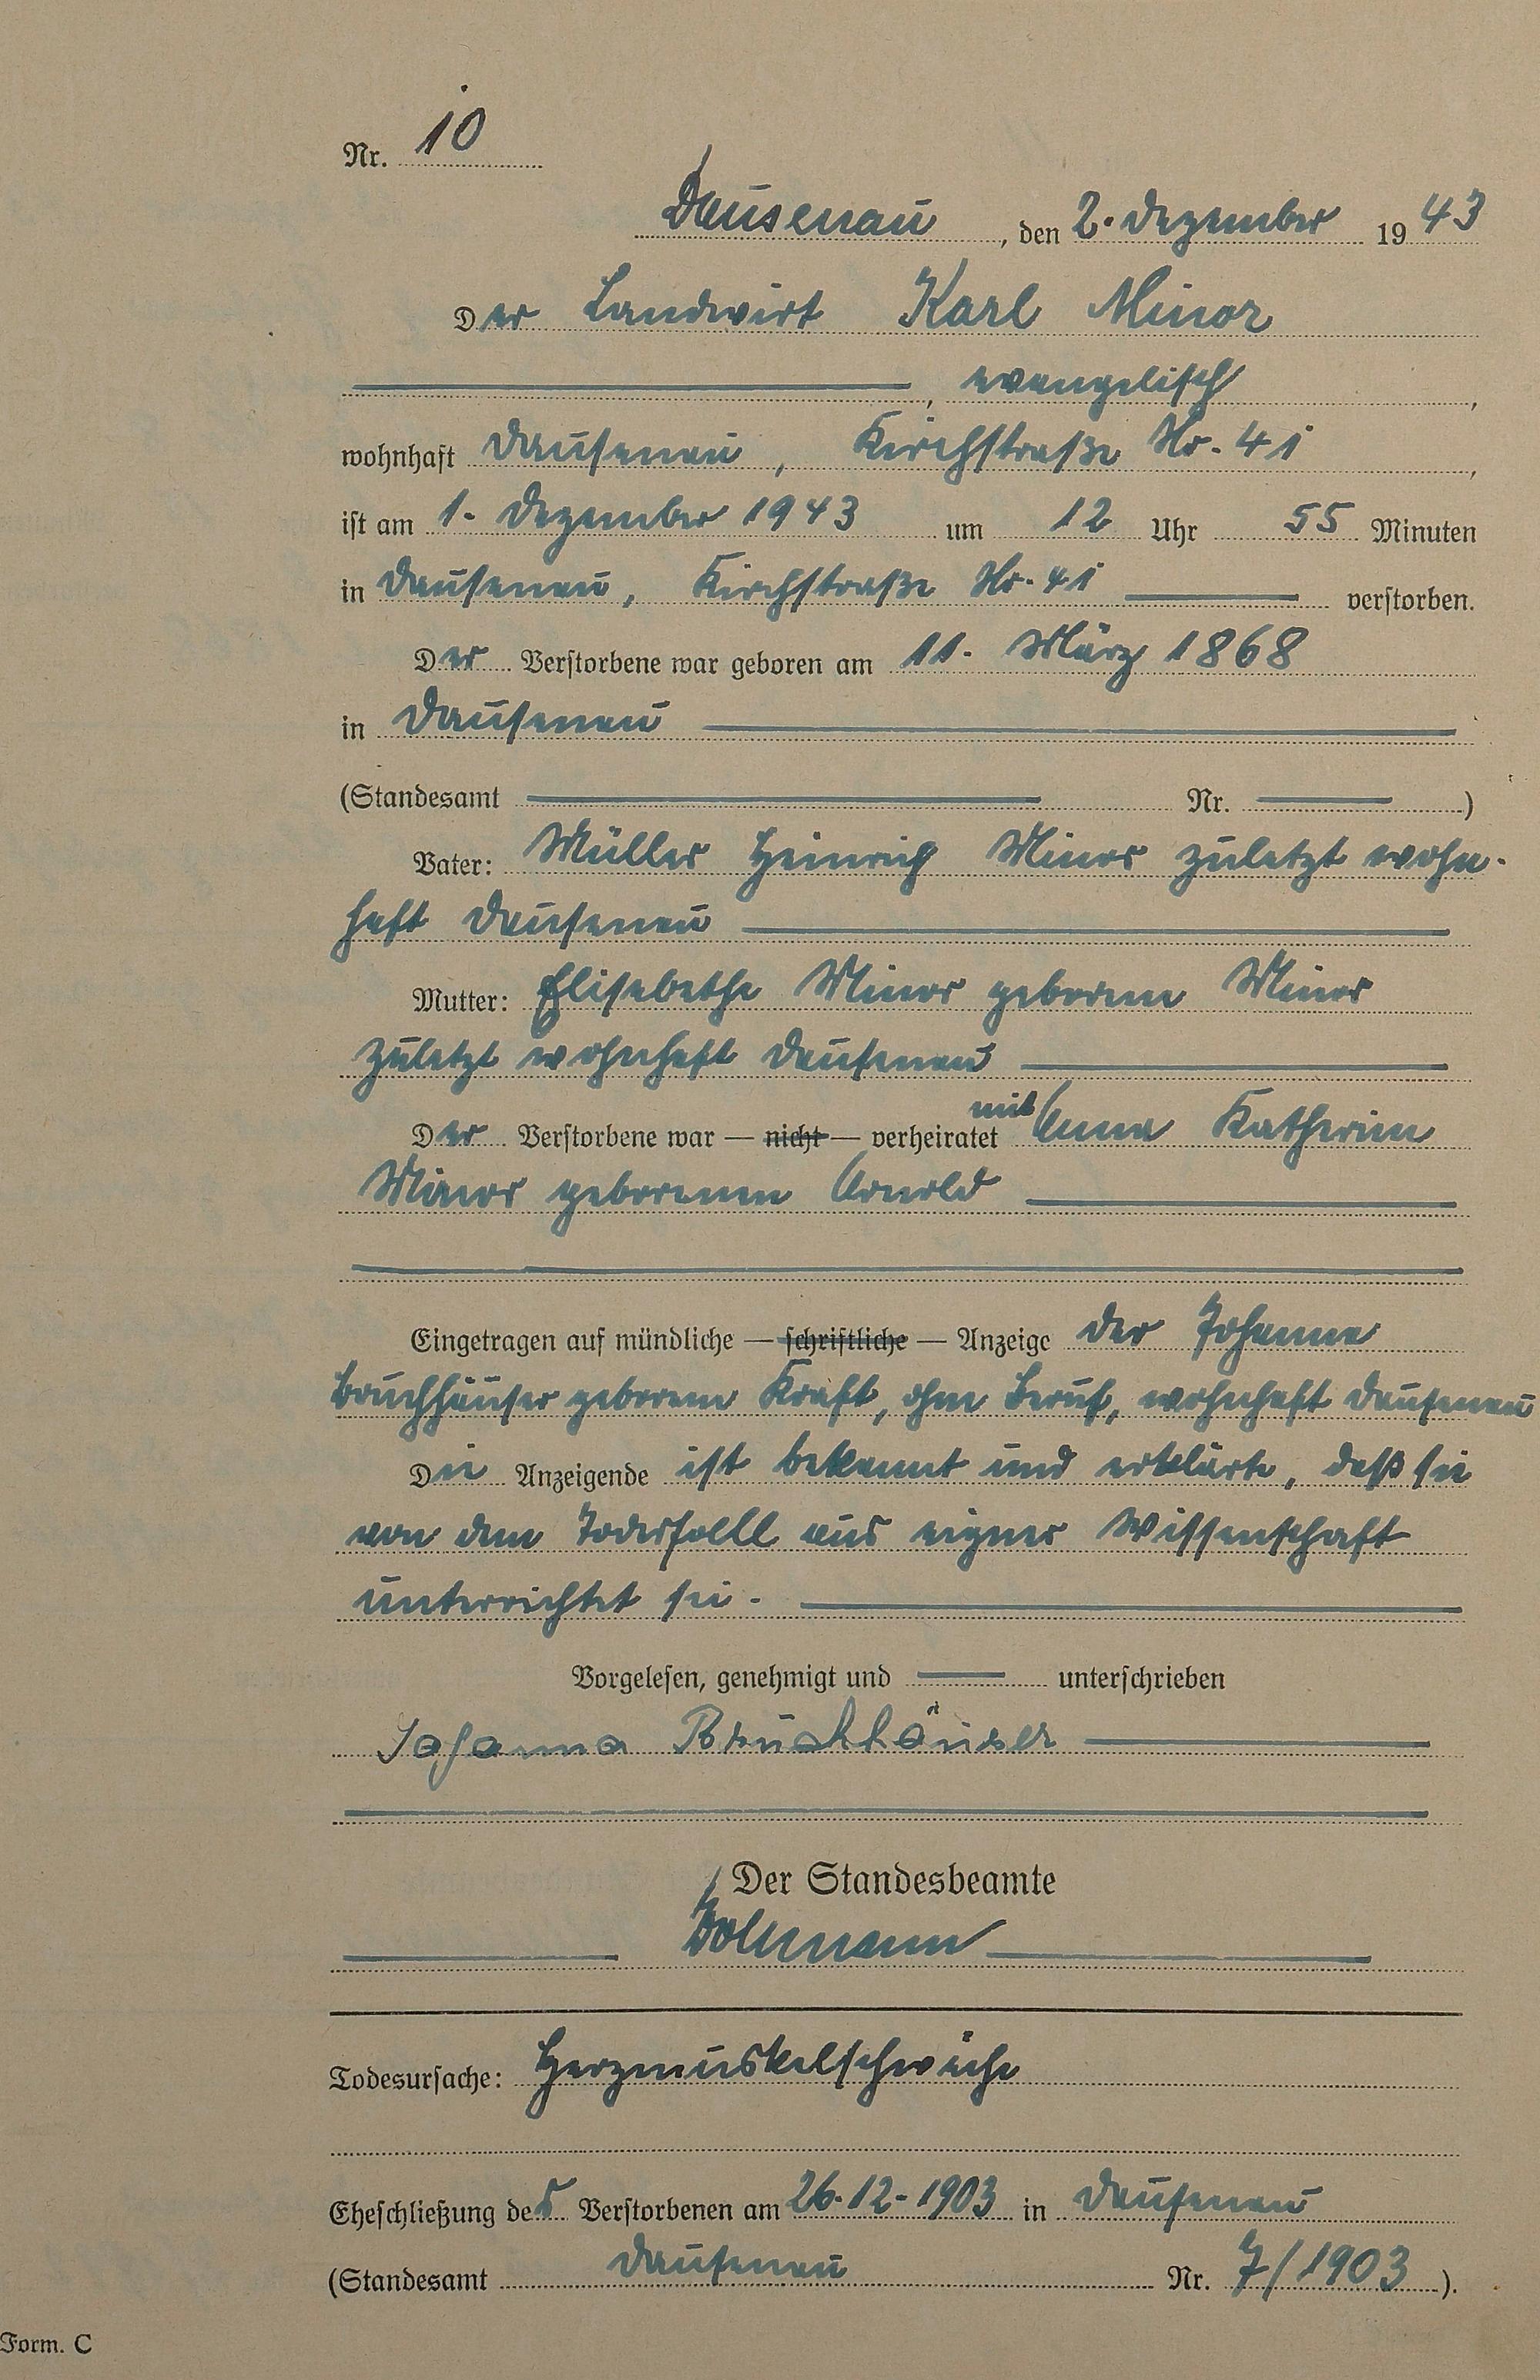 Nr. 10
Dausenau, den 2. Dezember 1943
Der Landwirt Karl Minor
, evangelisch,
wohnhaft Dausenau, Kirchstraße Nr. 41,
ist am 1. Dezember 1943 um 12 Uhr 55 Minuten
in Dausenau, Kirchstraße Nr. 41 verstorben.
Der Verstorbene war geboren am 11. März 1868
in Dausenau
(Standesamt Nr. )
Vater: Müller Heinrich Minor zuletzt wohn-
haft Dausenau
Mutter: Elisabethe Minor geborene Minor
zuletzt wohnhaft Dausenau
Der Verstorbene war — nicht — verheiratet mit Anna Katherine
Minor geborenen Arnold
Eingetragen auf mündliche — schriftliche — Anzeige der Johanna
Bruchhäuser geborene Kraft, ohne Beruf, wohnhaft Dausenau
Die Anzeigende ist bekannt und erklärte, daß sie
von dem Todesfalll aus eigner Wissenschaft
unterrichtet sei.
Vorgelesen, genehmigt und unterschrieben
Johanna Bruchhäuser
Der Standesbeamte
Todesursache: Herzmuskelschwäche
Eheschließung des Verstorbenen am 26.12.1903 in Dausenau
(Standesamt Dausenau Nr. 7/1903).
Form. C